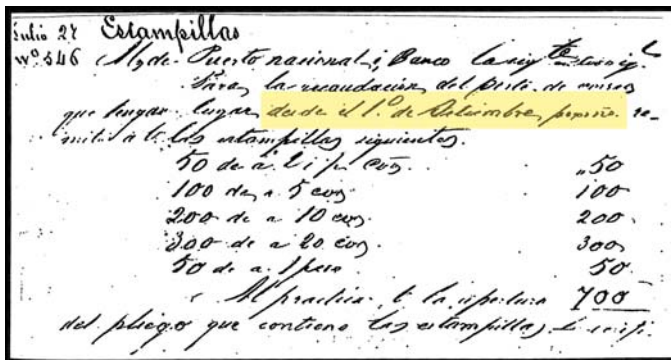 Julio 27 Estampillas
Nº 546 de Puerto nacional i Banco
Para la recaudacion del porte de
que tengan lugar desde el 1.º de Setiembre
las estampillas siguientes.
50 de a 2 i ½ cvs. „50
100 de a 5 cvs. 100
200 de a 10 cvs. 200
300 de a 20 cvs. 300
50 de a 1 peso 50
Al practicar la apertura 700
del pliego que contiene las estampillas